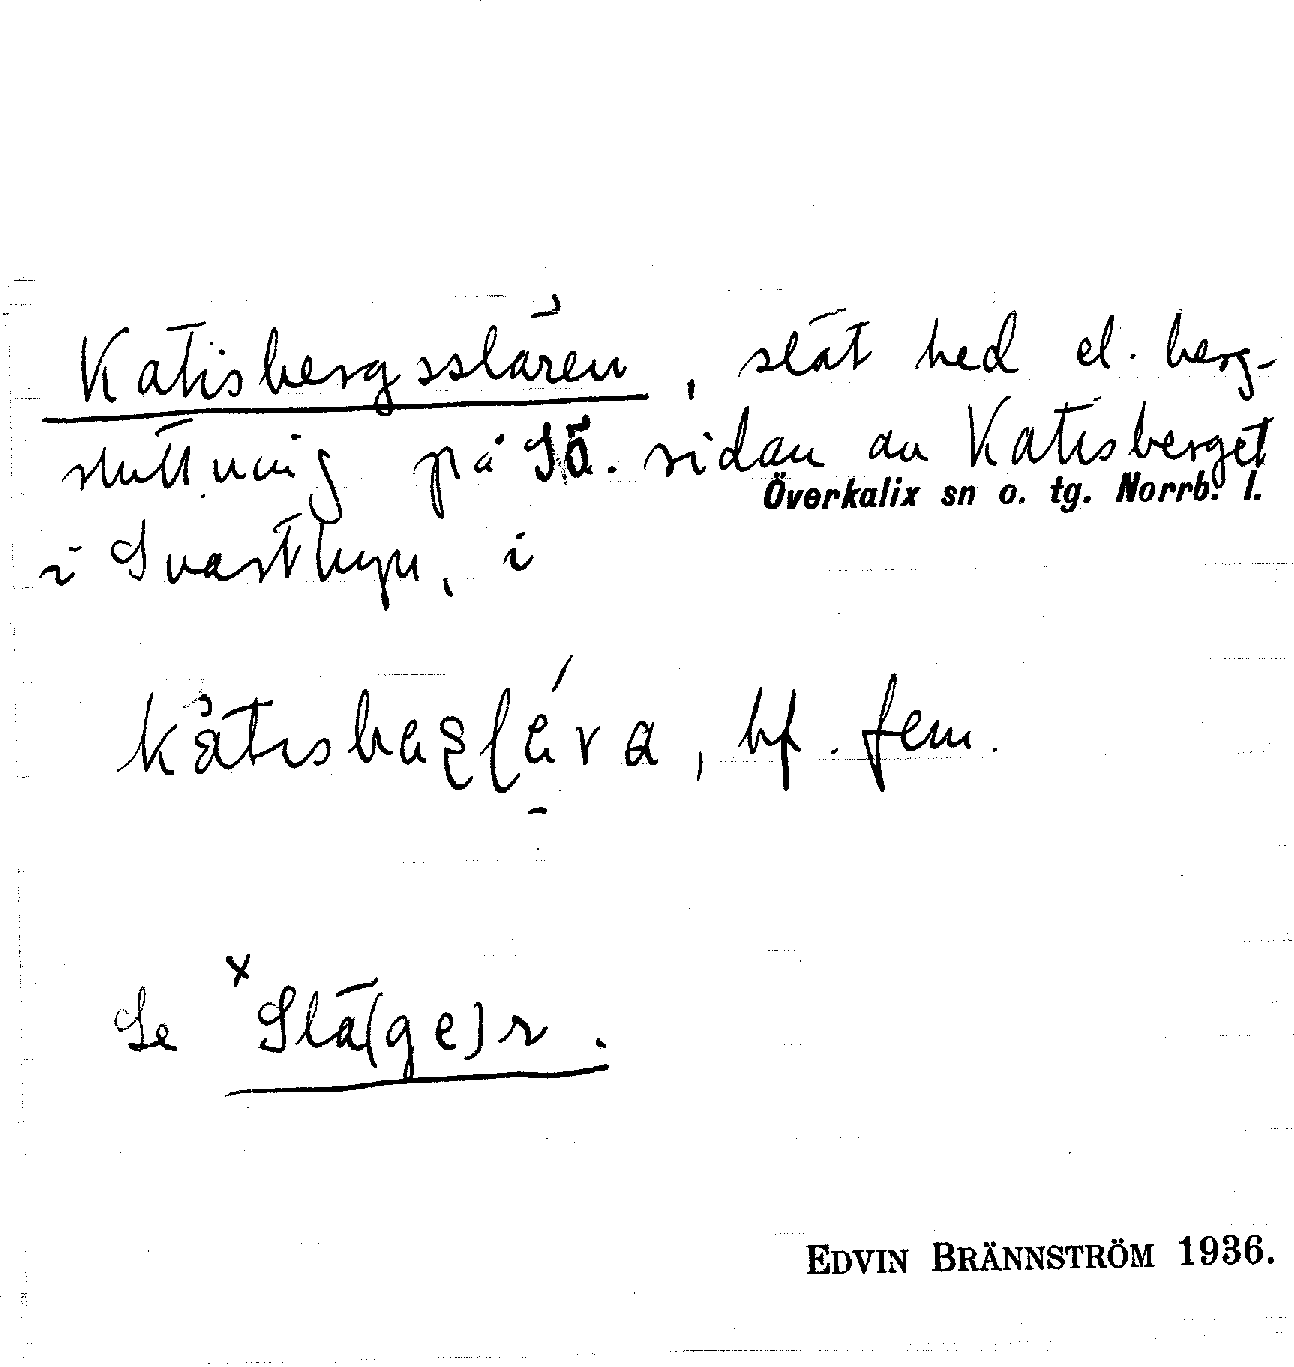 Katisbergsslären, slät hed el. berg-
sluttning på Sö. sidan av Katisberget
Överkalix sn o. tg. Norrb. l.
i Svartbyn, i
bf. fem.
Se ˣSlä(ge)r.
EDVIN BRÄNNSTRÖM 1936.